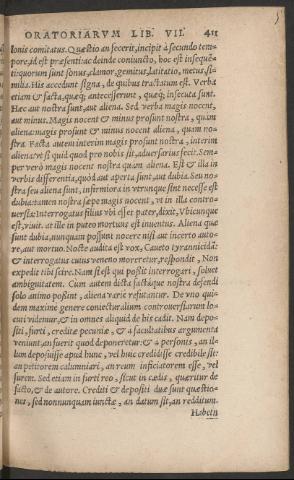 ORATORIARVM LIB. VII. 411
lonis comitatus. Quæstio an fecerit, incipit à secundo tem-
pore, id est præsenti: ac deinde coniuncto, hoc est insequẽ-
ti: quorum sunt sonus, clamor, gemitus, latitatio, metus, si-
milia. His accedunt signa, de quibus tractatum est. Verba
etiam & facta, quæq; antecesserunt, quæq; insecuta sunt.
Hæc aut nostra sunt, aut aliena. Sed verba magis nocent,
aut minus. Magis nocent & minus prosunt nostra, quàm
aliena: magis prosunt & minus nocent aliena, quàm no-
stra. Facta autem interim magis prosunt nostra, interim
aliena: vt si quid quod pro nobis sit, aduersarius fecit. Sem-
per verò magis nocent nostra quàm aliena. Est & illa in
verbis differentia, quòd aut aperta sunt, aut dubia. Seu no-
stra seu aliena sunt, infirmiora in verunque sint necesse est
dubia: tamen nostra sæpe magis nocent, vt in illa contro-
uersia: Interrogatus filius vbi esset pater, dixit, Vbicunque
est, viuit. at ille in puteo mortuus est inuentus. Aliena quæ
sunt dubia, nunquam possunt nocere nisi aut incerto auto-
re, aut mortuo. Nocte audita est vox, Caueto tyrannidã:
& interrogatus cuius veneno moreretur, respondit, Non
expedit tibi scire. Nam si est qui possit interrogari, soluet
ambiguitatem. Cum autem dicta factáque nostra defendi
solo animo possint, aliena varie refutantur. De vno qui-
dem maximè genere coniecturalium controuersiarum lo-
cuti videmur, & in omnes aliquid de his cadit. Nam depo-
siti, furti, creditæ pecuniæ, & à facultatibus argumenta
veniunt, an fuerit quod deponeretur: & à personis, an il-
lum deposuisse apud hunc, vel huic credidisse credibile sit:
an petitorem calumniari, an reum inficiatorem esse, vel
furem. Sed etiam in furti reo, sicut in cædis, quæritur de
facto, & de autore. Crediti & depositi duæ sunt quæstio-
nes, sed nonnunquam iunctæ, an datum sit, an redditum.
Habent